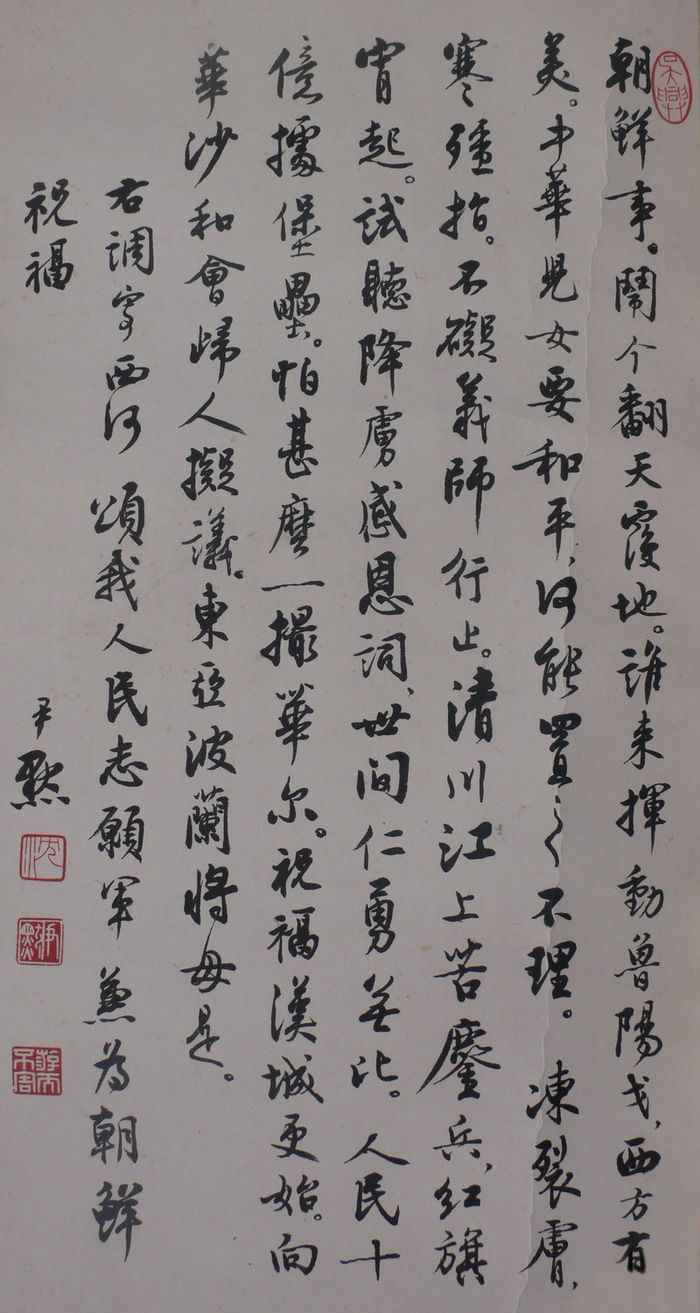 朝鮮事。鬧个翻天覆地。誰来揮動魯陽戈、西方有
美。中華兒女要和平、何能置之不理。凍裂膚、
寒殭指。不礙義師行止。清川江上苦鏖兵、紅旗
宵起。試聽降虜感恩詞、世间仁勇無比。人民十
億擂堡壘。怕甚麽一撮華尔。祝福漢城更始。向
華沙和會歸人擬議。東亞波蘭將毋是。
右調寄西河 頌我人民志願軍並为朝鮮
祝福
尹默
吴興
沈
尹默